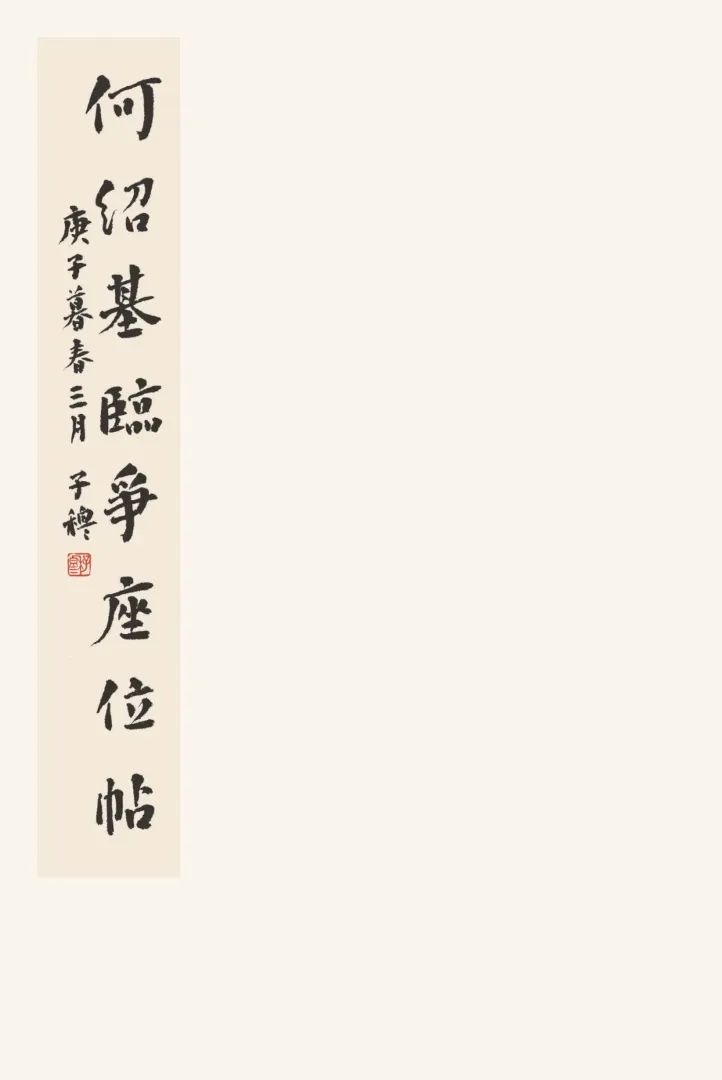 何紹基臨爭座位帖
庚子暮春三月 子穆